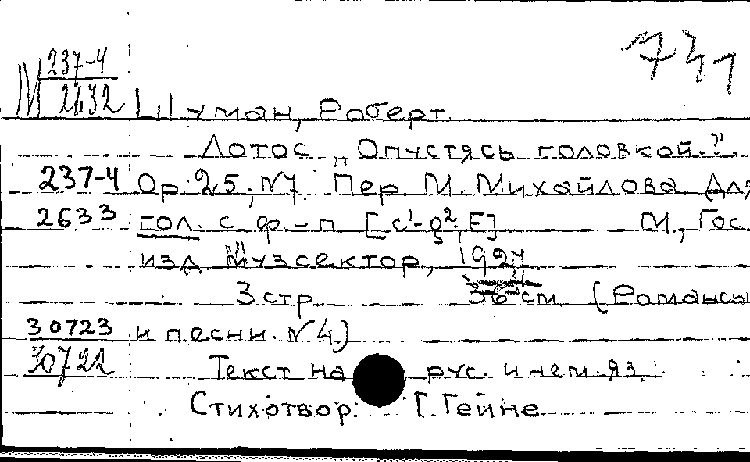 731
М 237-4
2632 Шуман, Роберт.
Лотос „Опустясь головкой.?"
237-4 Ор. 25, №7. Пер. М. Михайлова Для
2633 гол. с ф-п [c¹-g², F] М., Гос.
изд Музсектор, 1927
3 стр 36 см (Романсы
30723 и песни. №4)
30722 Текст на рус. и нем. яз.
Стихотвор. Г. Гейне